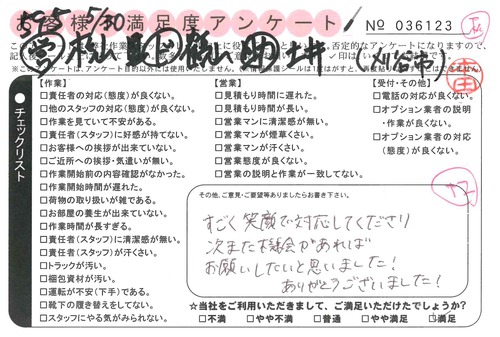 5/30
お客様満足度アンケート
No 036123
㊞営
(刈谷市)
チェックリスト
【作業】
□責任者の対応(態度)が良くない。
□他のスタッフの対応(態度)が良くない。
□作業を見ていて不安がある。
□責任者(スタッフ)に好感が持てない。
□お客様への挨拶が出来ていない。
□ご近所への挨拶・気遣いが無い。
□作業開始前の内容確認がなかった。
□作業開始時間が遅れた。
□荷物の取り扱いが雑である。
□お部屋の養生が出来ていない。
□作業時間が長すぎる。
□責任者(スタッフ)に清潔感が無い。
□責任者(スタッフ)が汗くさい。
□トラックが汚い。
□梱包資材が汚い。
□運転が不安(下手)である。
□靴下の履き替えをしてない。
□スタッフにやる気がみられない。
【営業】
□見積もり時間に遅れた。
□見積もり時間が長い。
□営業マンに清潔感が無い。
□営業マンが煙草くさい。
□営業マンが汗くさい。
□営業態度が良くない。
□営業の説明と作業が一致してない。
【受付・その他】
□電話の対応が良くない。
□オプション業者の説明
・作業が良くない。
□オプション業者の対応
(態度)が良くない。
その他、ご意見・ご要望等ありましたらお書き下さい。
すごく笑顔で対応してくださり
次また機会があれば
お願いしたいと思いました!
ありがとうございました!
☆当社をご利用いただきまして、ご満足いただけたでしょうか?
□不満 □やや不満 □普通 □やや満足 □満足